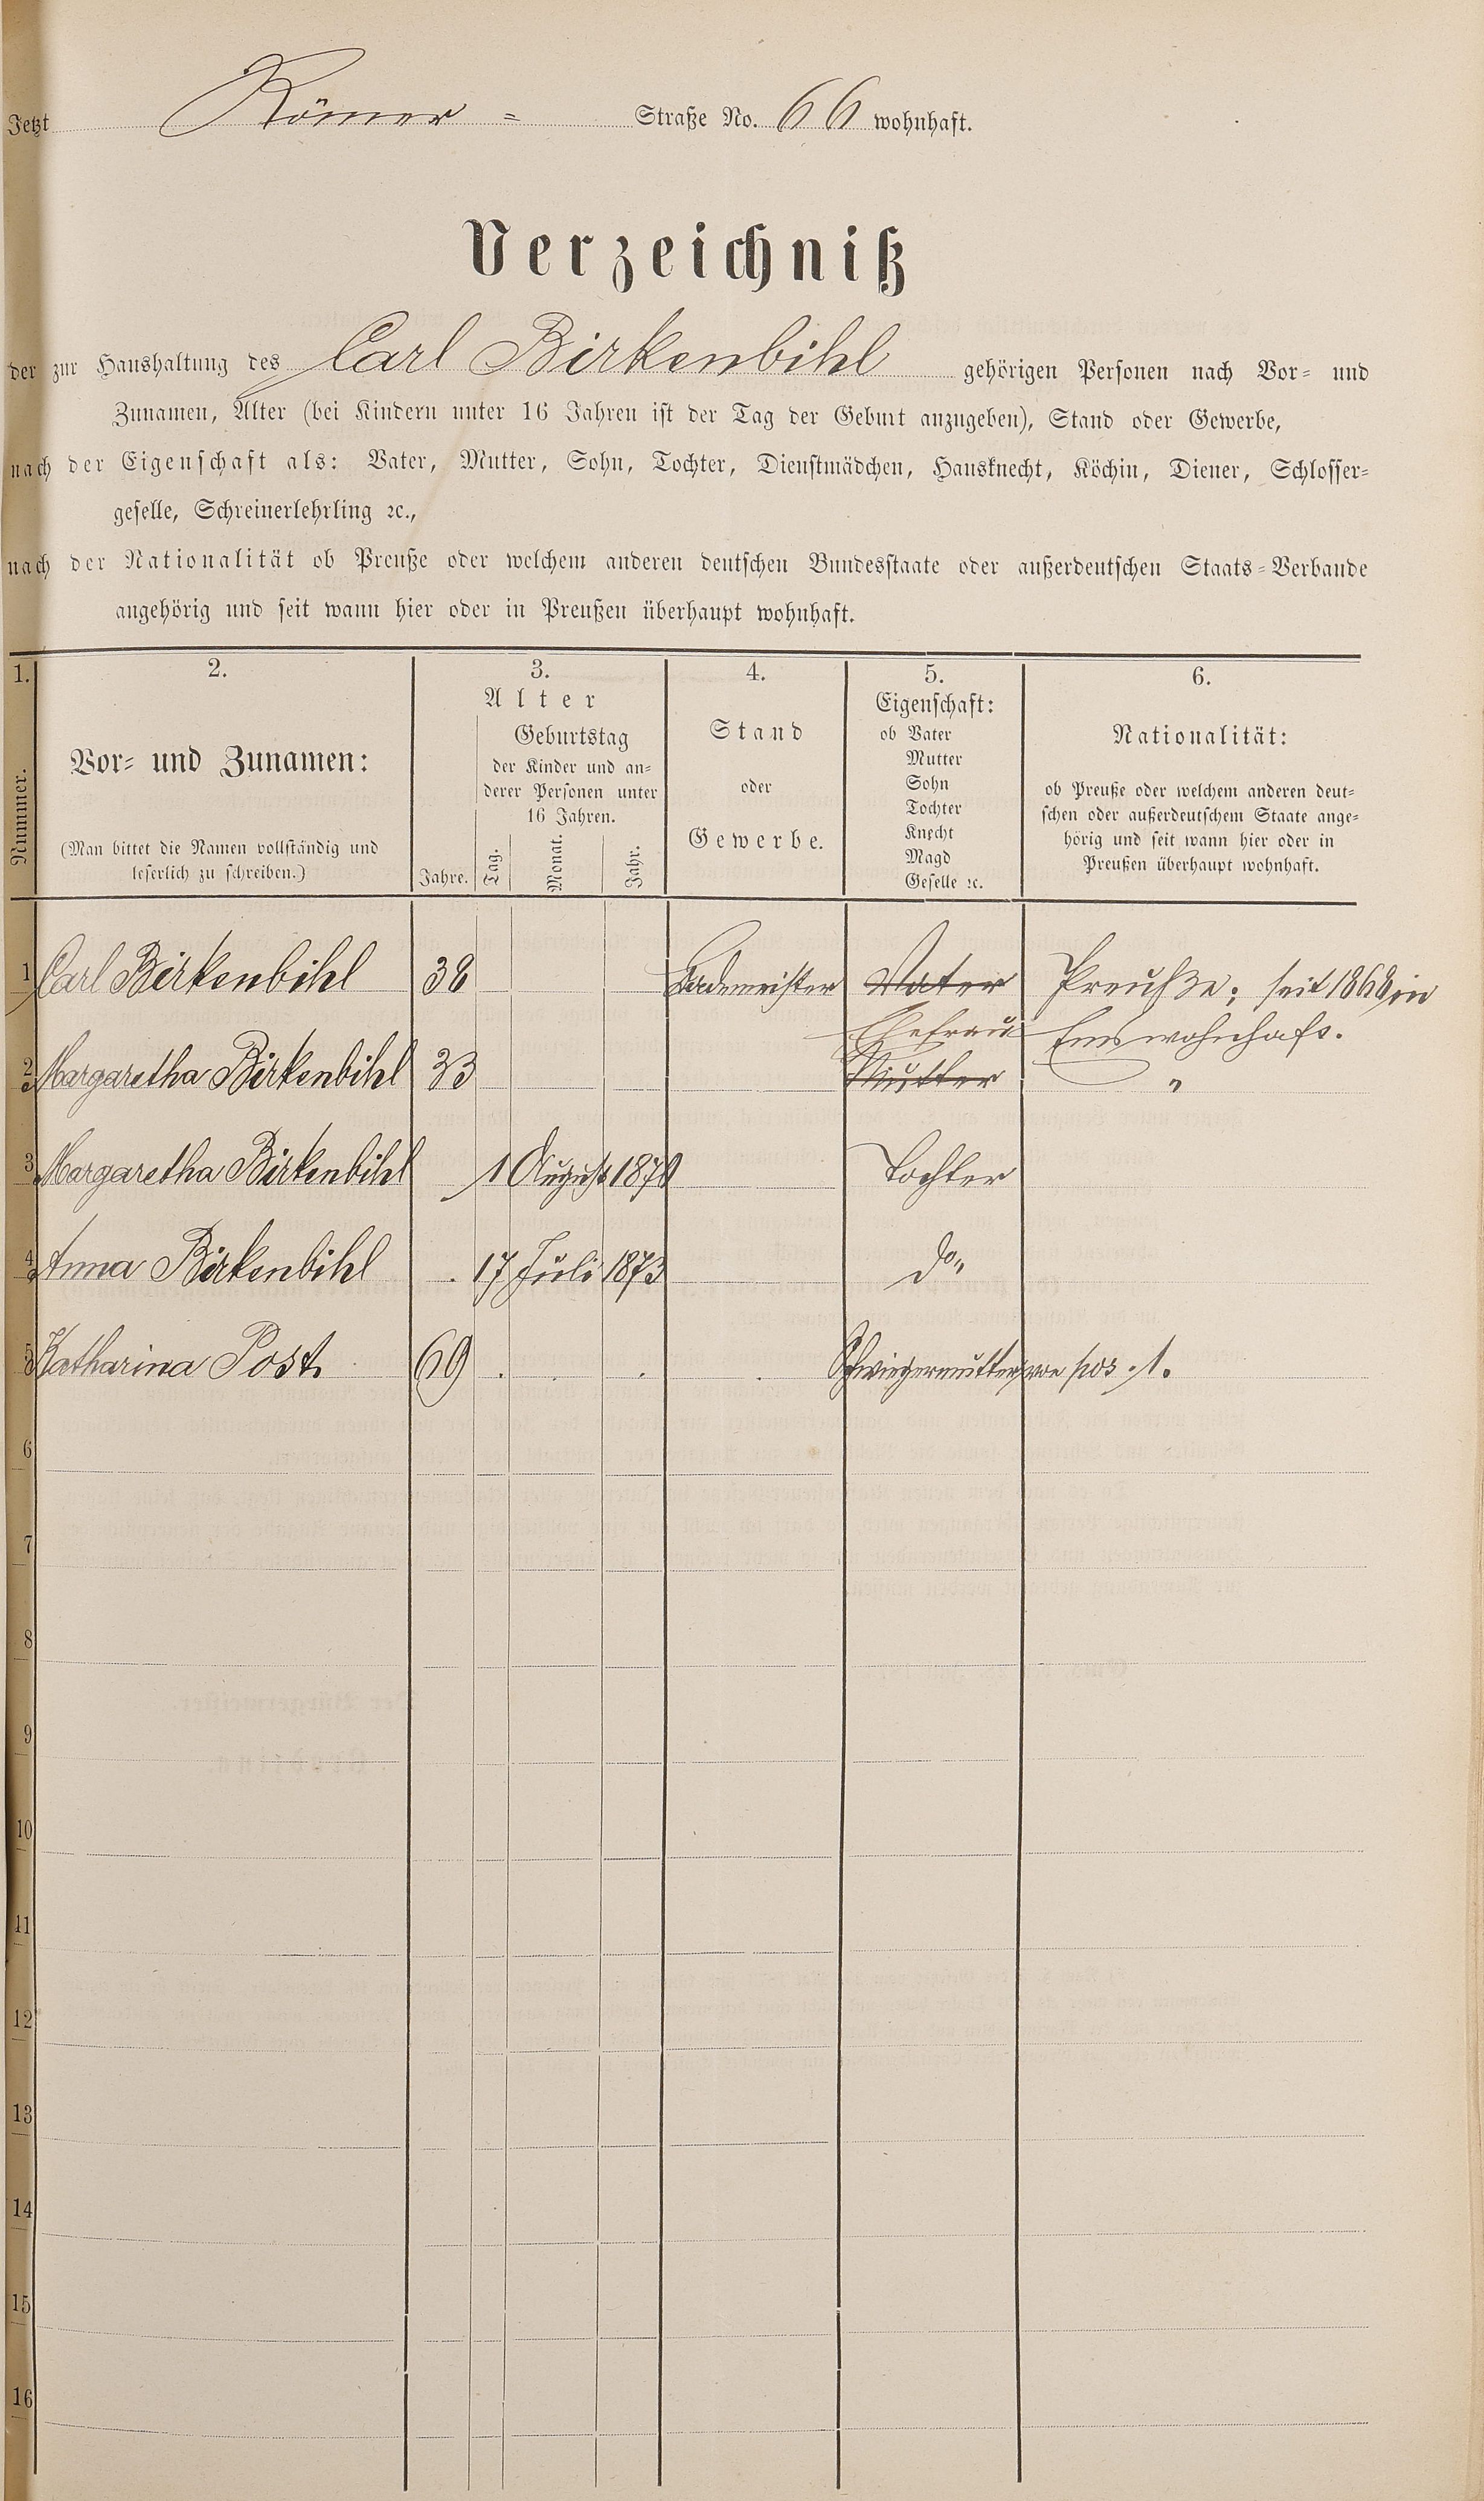 Jetzt Römer = Straße No. 66 wohnhaft.
Verzeichniß
der zur Haushaltung des Carl Birkenbihl gehörigen Personen nach Vor- und
Zunamen, Alter (bei Kindern unter 16 Jahren ist der Tag der Geburt anzugeben), Stand oder Gewerbe,
nach der Eigenschaft als: Vater, Mutter, Sohn, Tochter, Dienstmädchen, Hausknecht, Köchin, Diener, Schlosser-
geselle, Schreinerlehrling ꝛc.,
nach der Nationalität ob Preuße oder welchem anderen deutschen Bundesstaate oder außerdeutschen Staats-Verbande
angehörig und seit wann hier oder in Preußen überhaupt wohnhaft.
1.
Nummer.
2.
Vor- und Zunamen:
(Man bittet die Namen vollständig und
leserlich zu schreiben.)
3.
Alter
Jahre.
Geburtstag
der Kinder und an-
derer Personen unter
16 Jahren.
Tag. Monat. Jahr.
4.
Stand
oder
Gewerbe.
5.
Eigenschaft:
ob Vater
Mutter
Sohn
Tochter
Knecht
Magd
Geselle ꝛc.
6.
Nationalität:
ob Preuße oder welchem anderen deut-
schen oder außerdeutschem Staate ange-
hörig und seit wann hier oder in
Preußen überhaupt wohnhaft.
1 Carl Birkenbihl 38 Bademeister Vater Preuße; seit 1868 in
Ehefrau Ems wohnhaft.
2 Margaretha Birkenbihl 33 Mutter "
3 Margaretha Birkenbihl 1 August 1870 Tochter
4 Anna Birkenbihl 17 Juli 1873 do"
5 Katharina Post 69 Schwiegermutter von pos. 1.
6
7
8
9
10
11
12
13
14
15
16